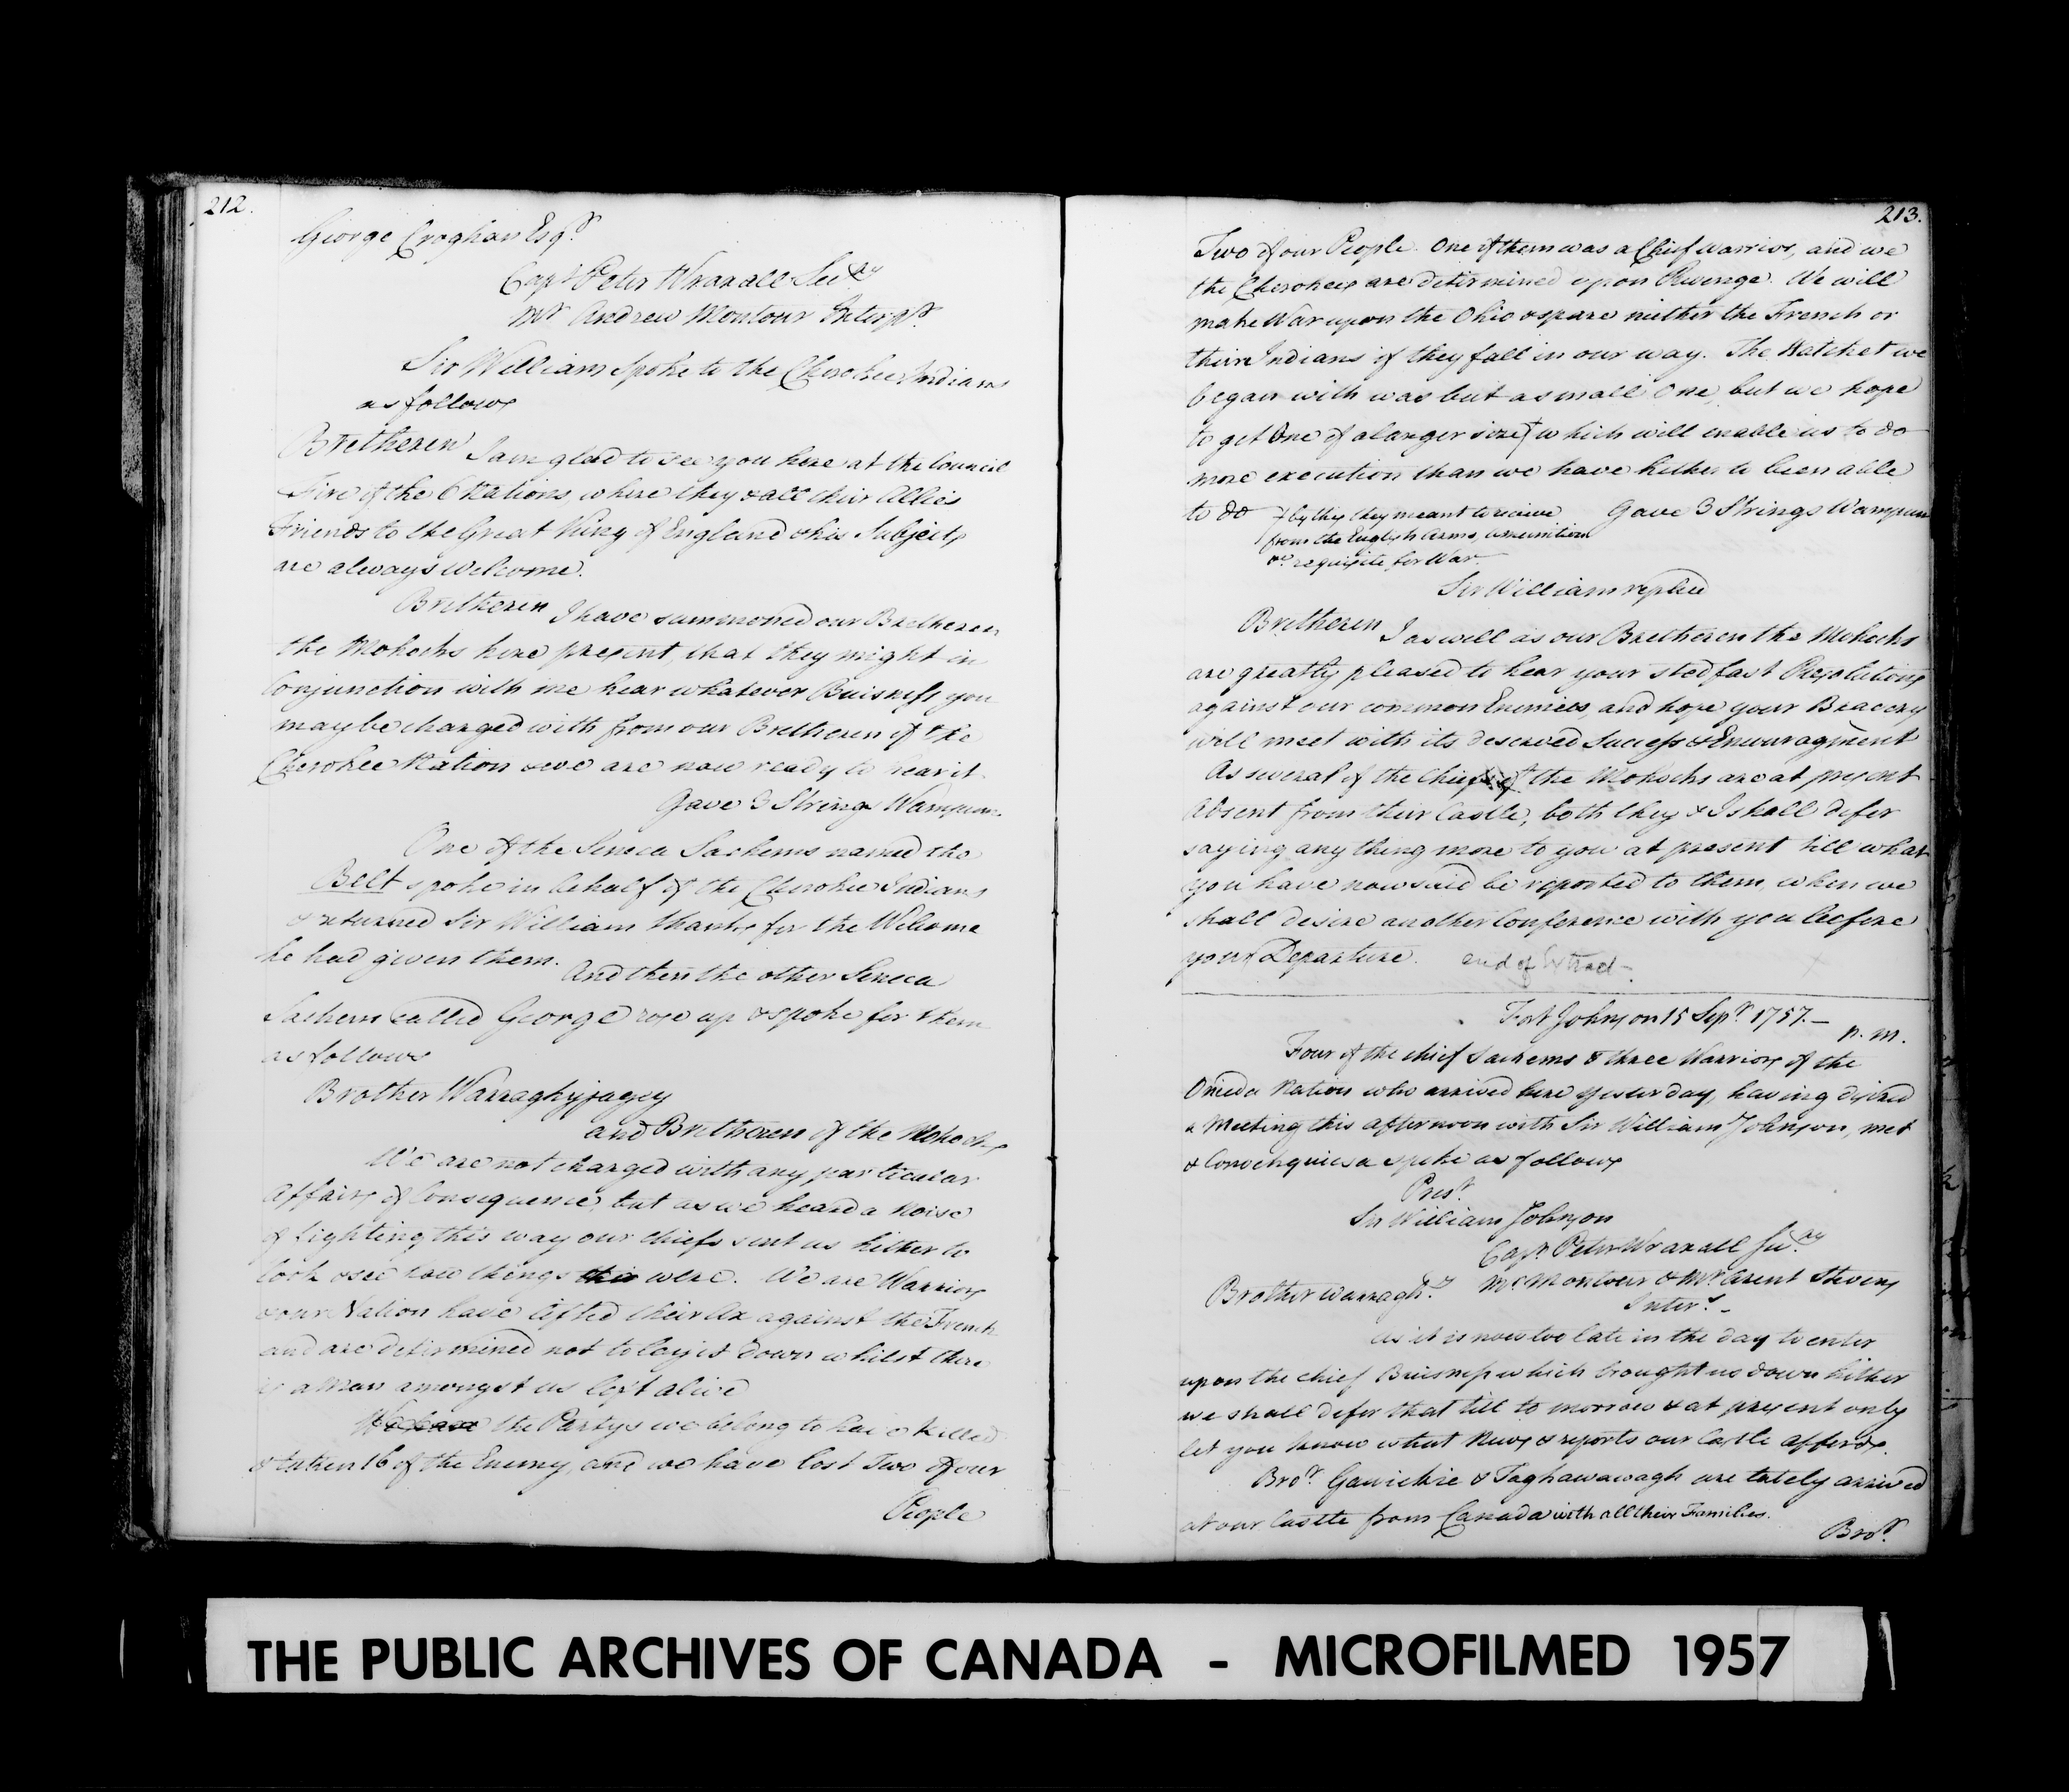 212.
George Croghan Esqr.
Capt. Peter Wraxall Secry.
Mr. Andrew Montour Interpr.
Sir William Spoke to the Cherokee Indians
as follows
Bretheren I am glad to see you here at the Council
Fire of the 6 Nations, where they & all their Allies
Friends to the Great King of England & his Subjects
are always Welcome.
Bretheren I have summoned our Bretheren
the Mohocks here present, that they might in
Conjunction with me hear whatever Buisness you
may be charged with from our Bretheren of the
Cherokee Nation & we are now ready to hear it.
Gave 3 Strings Wampum.
One of the Seneca Sachems named the
Belt spoke in behalf of the Cherokee Indians
& returned Sir William thanks for the Welcome
he had given them.
And then the other Seneca
Sachem called George rose up & spoke for them
as follows
Brother Warraghyjagey
and Bretheren of the Mohocks
We are not charged with any particular
Affairs of Consequence, but as we heard a Noise
of fighting this way our chiefs sent us hither to
look & see how things this were. We are Warriors
& our Nation have lifted their Ax against the French
and are determined not to lay it down whilst there
is a Man amongst us left alive
We have the Partys we belong to have killed
& taken 16 of the Enemy, and we have lost Two of our
People
213.
Two of our People. One of them was a Chief Warrior, and we
the Cherokees are determined upon Revenge. We will
make War upon the Ohio & spare neither the French or
their Indians if they fall in our way. The Hatchet we
began with was but a small One, but we hope
to get One of a larger size + which will enable us to do
more execution than we have hitherto been able
to do + by this they meant to receive Gave 3 Strings Wampum
from the English Arms, ammunition
&c. requisite for War.
Sir William replied
Bretheren I as well as our Bretheren the Mohocks
are greatly pleased to hear your stedfast Resolutions
against our common Enimies, and hope your Bravery
will meet with its deserved Success & Encouragment
As several of the Chiefs of the Mohocks are at present
Absent from their Castle, both they & I shall defer
saying any thing more to you at present till what
you have now said be reported to them, when we
shall desire another Conference with you before
your Departure. end of Extract —
Fort Johnson 15 Sepr. 1757. —
p. m.
Four of the chief Sachems & three Warriors of the
Oneida Nation who arrived here yesterday, having desired
a Meeting this afternoon with Sir William Johnson, met
& Conochquiesa spoke as follows
Prest.
Sir William Johnson
Capt. Peter Wraxall Secry.
Brother Warragh.y Mr. Montour & Mr. Arent Stevens
Interrs. —
As it is now too late in the day to enter
upon the chief Buisness which brought us down hither
we shall defer that till to morrow & at present only
let you know what News & reports our Castle affords.
Bror. Gawickie & Taghawawagh are lately arrived
at our Castle from Canada with all their Families.
Bror.
THE PUBLIC ARCHIVES OF CANADA - MICROFILMED 1957